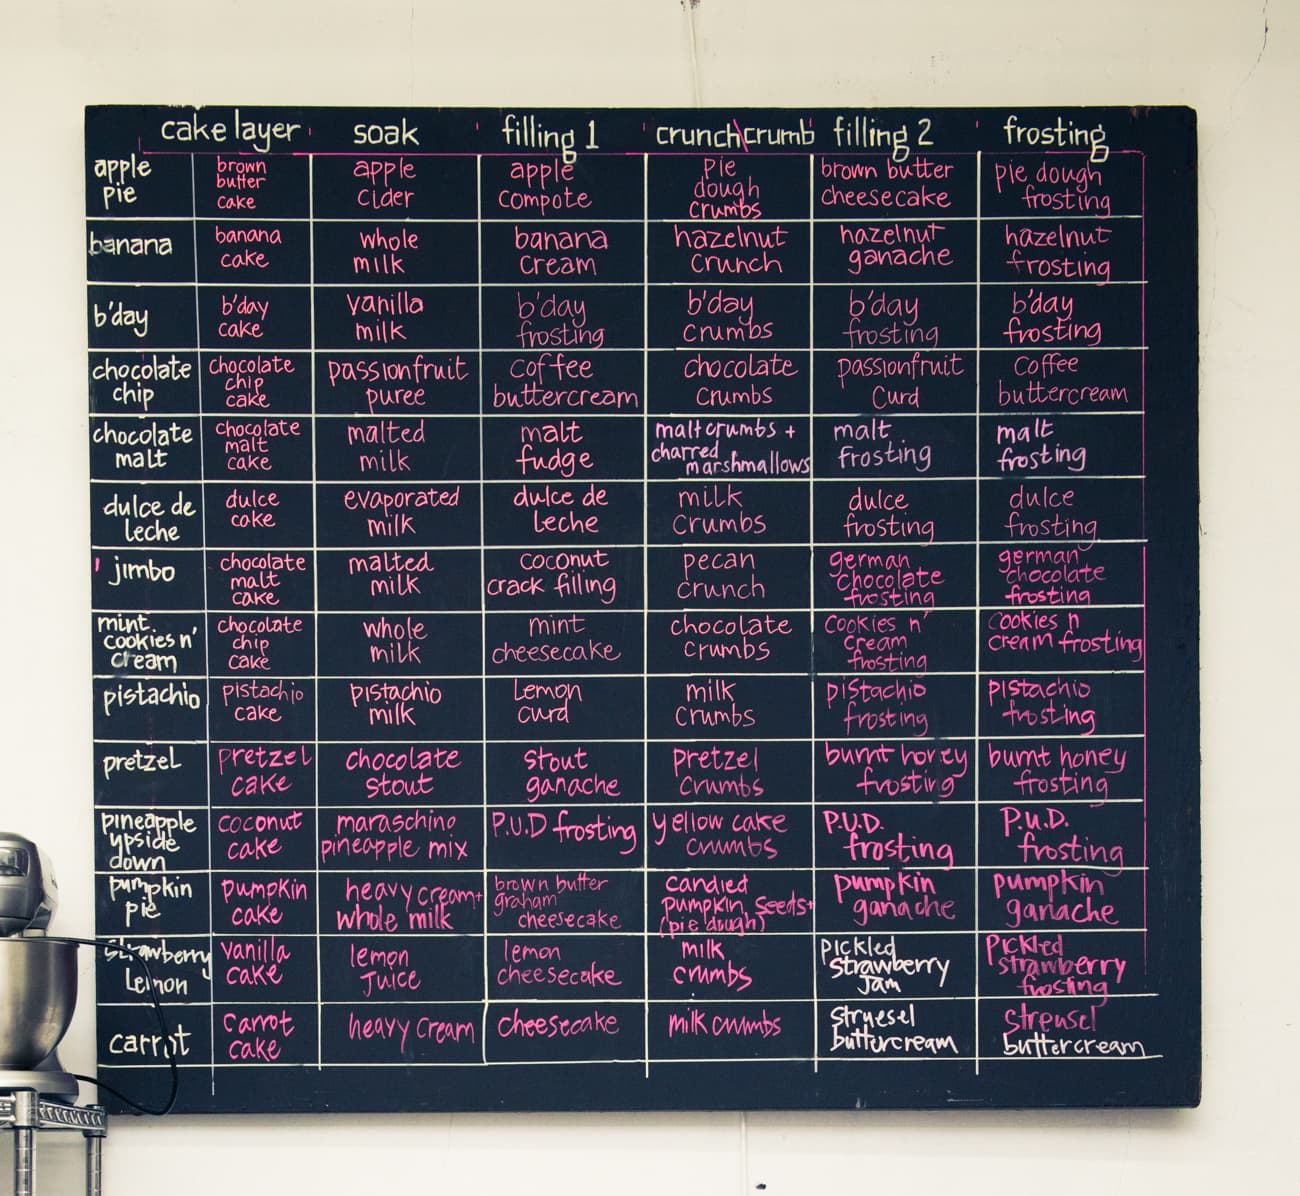 cake layer soak filling 1 crunch\crumb filling 2 frosting
apple pie brown butter cake apple cider apple compote pie dough crumbs brown butter cheesecake pie dough frosting
banana banana cake whole milk banana cream hazelnut crunch hazelnut ganache hazelnut frosting
b'day b'day cake vanilla milk b'day frosting b'day crumbs b'day frosting b'day frosting
chocolate chip chocolate chip cake passionfruit puree coffee buttercream chocolate crumbs passionfruit curd coffee buttercream
chocolate malt chocolate malt cake malted milk malt fudge malt crumbs + charred marshmallows malt frosting malt frosting
dulce de leche dulce cake evaporated milk dulce de leche milk crumbs dulce frosting dulce frosting
jimbo chocolate malt cake malted milk coconut crack filling pecan crunch german chocolate frosting german chocolate frosting
mint cookies n' cream chocolate chip cake whole milk mint cheesecake chocolate crumbs cookies n' cream frosting cookies n cream frosting
pistachio pistachio cake pistachio milk lemon curd milk crumbs pistachio frosting pistachio frosting
pretzel pretzel cake chocolate stout stout ganache pretzel crumbs burnt honey frosting burnt honey frosting
pineapple upside down coconut cake maraschino pineapple mix P.U.D frosting yellow cake crumbs P.U.D. frosting P.U.D. frosting
pumpkin pie pumpkin cake heavy cream + whole milk brown butter graham cheesecake candied pumpkin seeds + (pie dough) pumpkin ganache pumpkin ganache
strawberry lemon vanilla cake lemon juice lemon cheesecake milk crumbs pickled strawberry jam pickled strawberry frosting
carrot carrot cake heavy cream cheesecake milk crumbs struesel buttercream streusel buttercream